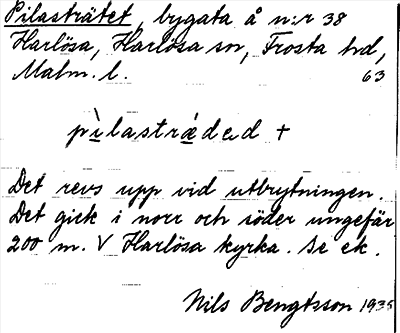 Pilasträtet, bygata å n:r 38
Harlösa, Harlösa sn, Frosta hd,
Malm. l. 63
pìlasträ́ded +
Det revs upp vid utbrytningen.
Det gick i norr och söder ungefär
200 m. V Harlösa kyrka. Se ek.
Nils Bengtsson 1935